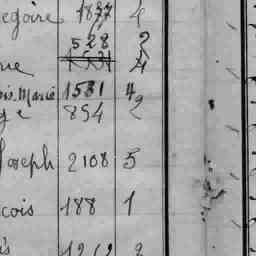 egoire 1877 4
528 2
1531 4
ois. Marie 1531 4
ge 854 2
Joseph 2108 5
cois 188 1